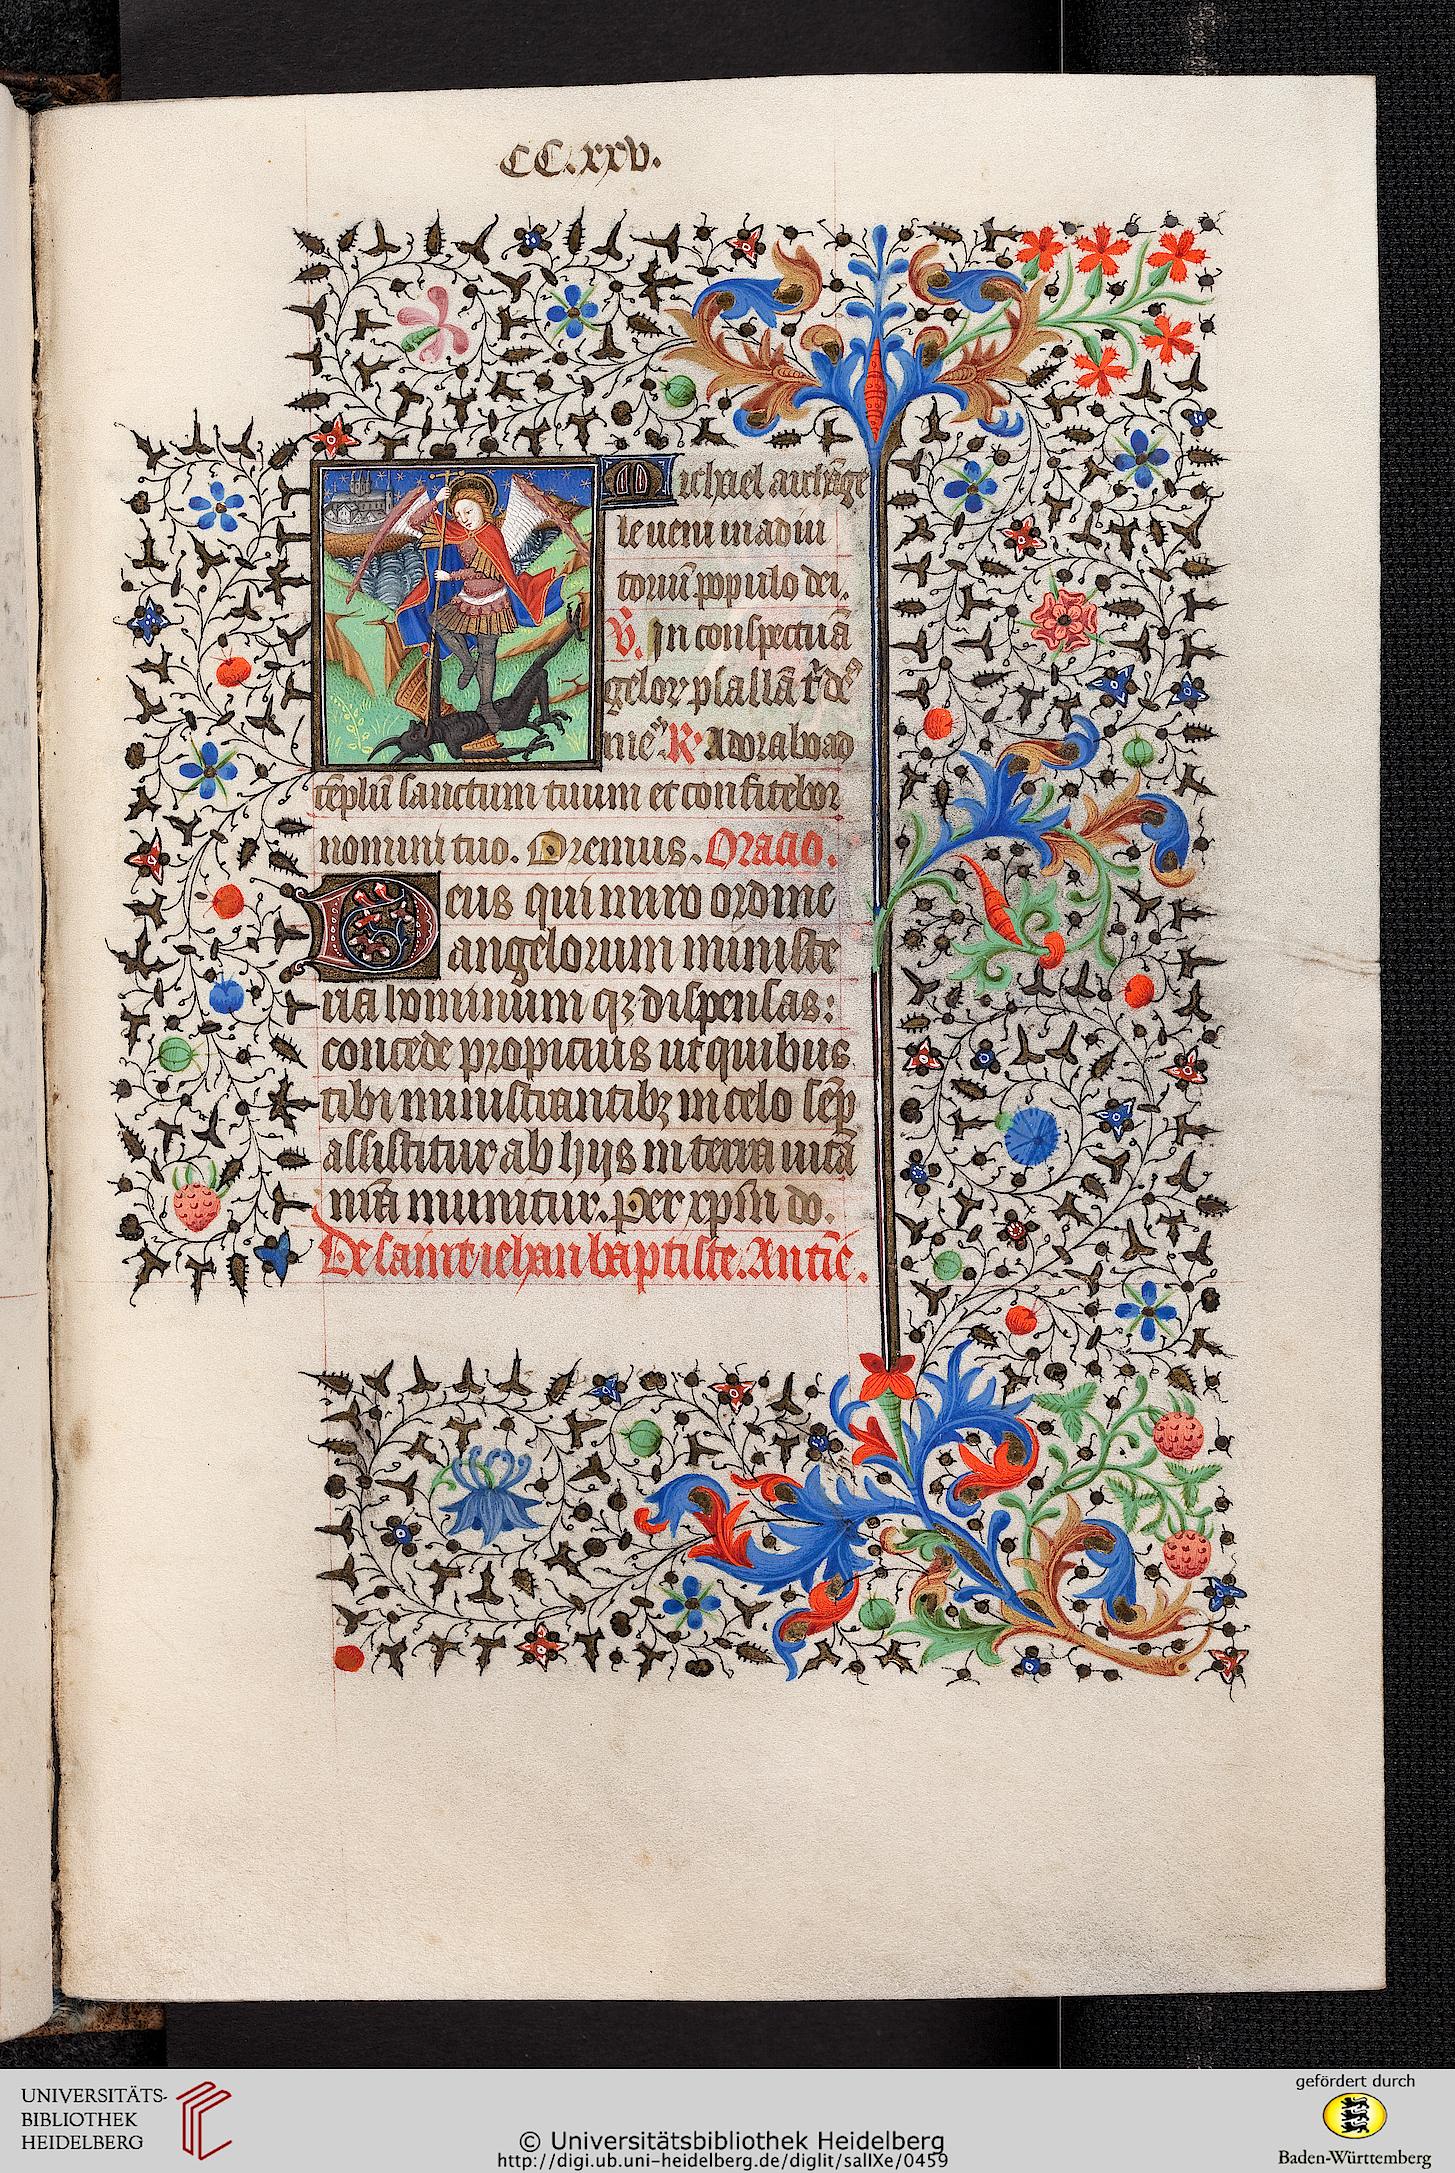 CC.xxv.
Michael archãge
le veni in adiu
toriũ populo dei.
V. In conspectu ã
gelorꝝ psallã t̃ deꝰ
meꝰ. R. Adorabo ad
tẽplũ sanctum tuum et confitebor
nomini tuo. Oremus. Oracio.
Deus qui miro ordine
angelorum ministe
ria hominum qꝫ dispensas:
concede propicius ut quibus
tibi ministrantibꝫ in celo sẽp
assistitur ab hijs in terra vita
nr̃a muniatur. Per xp̃m do.
De saint iehan baptiste. Antiẽ.
UNIVERSITÄTS-
BIBLIOTHEK
HEIDELBERG
© Universitätsbibliothek Heidelberg
http://digi.ub.uni-heidelberg.de/diglit/salIXe/0459
gefördert durch
Baden-Württemberg